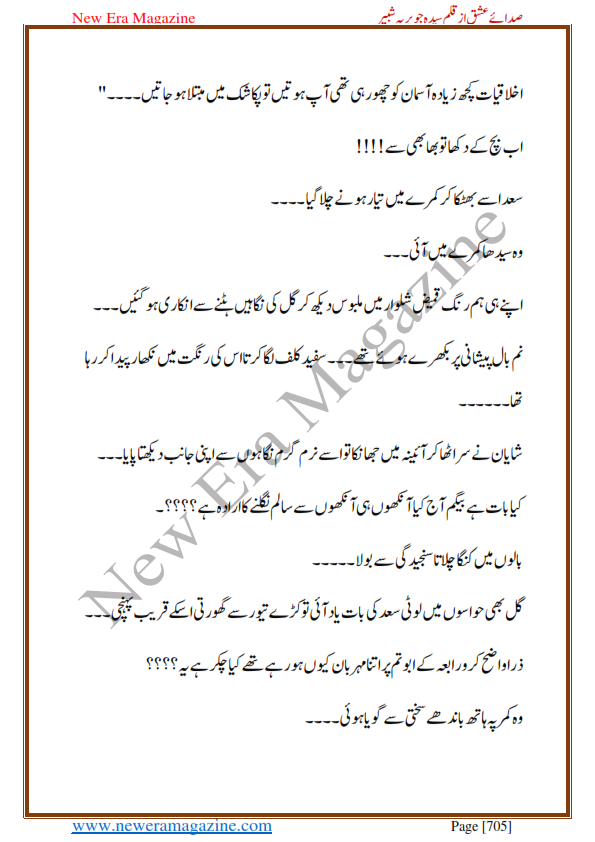 New Era Magazine صدائے عشق از قلم سیدہ جویریہ شبیر
اخلاقیات کچھ زیادہ آسمان کو چھو رہی تھی آپ ہوتیں تو پکا شک میں مبتلا ہو جاتیں۔۔۔۔"
اب بچ کے دکھا تو بھابھی سے!!!!
سعد اسے بھٹکا کر کمرے میں تیار ہونے چلا گیا۔۔۔۔
وہ سیدھا کمرے میں آئی۔۔۔
اپنے ہی ہم رنگ قمیض شلوار میں ملبوس دیکھ کر گل کی نگاہیں ہٹنے سے انکاری ہو گئیں۔۔۔
نم بال پیشانی پر بکھرے ہوئے تھے۔۔۔سفید کلف لگا کرتا اس کی رنگت میں نکھار پیدا کر رہا
تھا۔۔۔۔۔۔
شایان نے سر اٹھا کر آئینہ میں جھانکا تو اسے نرم گرم نگاہوں سے اپنی جانب دیکھتا پایا۔۔۔
کیا بات ہے بیگم آج کیا آنکھوں ہی آنکھوں سے سالم نگلنے کا ارادہ ہے؟؟؟؟۔
بالوں میں کنگا چلاتا سنجیدگی سے بولا۔۔۔۔۔
گل بھی حواسوں میں لوٹی سعد کی بات یاد آئی تو کڑے تیور سے گھورتی اسکے قریب پہنچی۔۔۔
ذرا واضح کرو رابعہ کے ابو تم پر اتنا مہربان کیوں ہو رہے تھے کیا چکر ہے یہ؟؟؟؟
وہ کمر پہ ہاتھ باندھے سختی سے گویا ہوئی۔۔۔۔
New Era Magazine
www.neweramagazine.com Page [705]